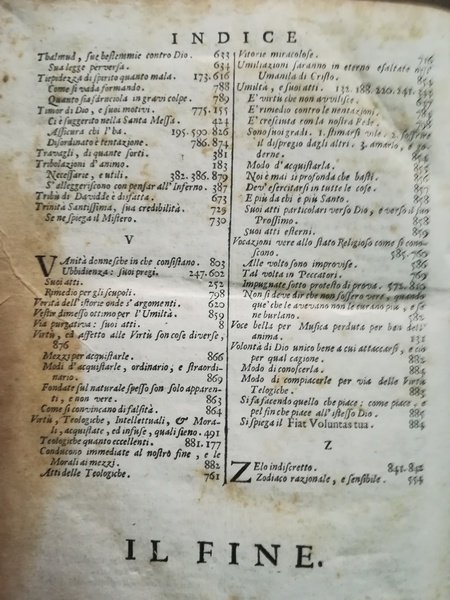 INDICE
Thalmud, sue bestemmie contro Dio. 633
Sua legge perversa. 634
Tiepidezza di spirito quanto mala. 173. 616
Come si vada formando. 788
Quanto sia sdrucciola in gravi colpe. 789
Timor di Dio, e suoi motivi. 775. 155
Ci è suggerito nella Santa Messa. 424
Assicura chi l'ha. 195. 590. 826
Disordinato è tentazione. 786. 874
Travagli, di quante sorti. 381
Tribolazioni d'animo. 183
Necessarie, e utili. 382. 386. 879
S'alleggeriscono con pensar all'Inferno. 387
Tribù di Davidde è disfatta. 673
Trinità Santissima, sua credibilità. 729
Se ne spiega il Mistero. 730
V
VAnità donnesche in che consistano. 803
Ubbidienza: suoi pregi. 247. 602
Suoi atti. 252
Rimedio per gli scrupoli. 798
Verità dell'istorie onde s'argomenti. 620
Vestir dimesso ottimo per l'Umiltà. 859
Via purgativa: suoi atti. 8
Virtù, ed affetto alle Virtù son cose diverse,
876
Mezzi per acquistarle. 866
Modi d'acquistarle, ordinario, e straordi-
nario. 869
Fondate sul naturale spesso son solo apparen-
ti, e non vere. 863
Come si convincano di falsità. 864
Virtù, Teologiche, Intellettuali, & Mora-
li, acquistate, ed infuse, quali sieno. 491
Teologiche quanto eccellenti. 881. 177
Conducono immediate al nostro fine, e le
Morali ai mezzi. 882
Atti delle Teologiche. 761
Vittorie miracolose. 716
Umiliazioni saranno in eterno esaltate nell'
Umanità di Cristo. 854
Umiltà, e suoi atti. 132. 188. 220. 241. 333
E' virtù che non avvilisce.
E' rimedio contro le tentazioni.
E' cresciuta con la nostra Fede.
Sono suoi gradi. 1. stimarsi vile. 2. soffrire
il dispregio dagli altri. 3. amarlo, e go-
derne.
Modo d'acquistarla.
Noi è mai sì profonda che basti.
Dev'esercitarsi in tutte le cose.
E più da chi è più Santo.
Suoi atti particolari verso Dio, e verso il suo
Prossimo.
Suoi atti esterni.
Vocazioni vere allo stato Religioso come si cono-
scono. 585.
Alle volte sono improvise.
Tal volta in Peccatori.
Impugnate sotto protesto di prova. 572. 810
Non si deve dir che non fossero vere, quan-
do che le avevano non le curano più, e se
ne burlano.
Voce bella per Musica perduta per ben dell'
anima. 131
Volontà di Dio unico bene a cui attaccarsi, e
per qual cagione.
Modo di conoscerla.
Modo di compiacerle per via delle Virtù
Teologiche.
Si fa facendo quello che piace: come piace, e
pel fin che piace all'istesso Dio. 884
Si spiega il Fiat Voluntas tua. 885
Z
ZElo indiscreto. 841. 842
Zodiaco razionale, e sensibile. 554
IL FINE.